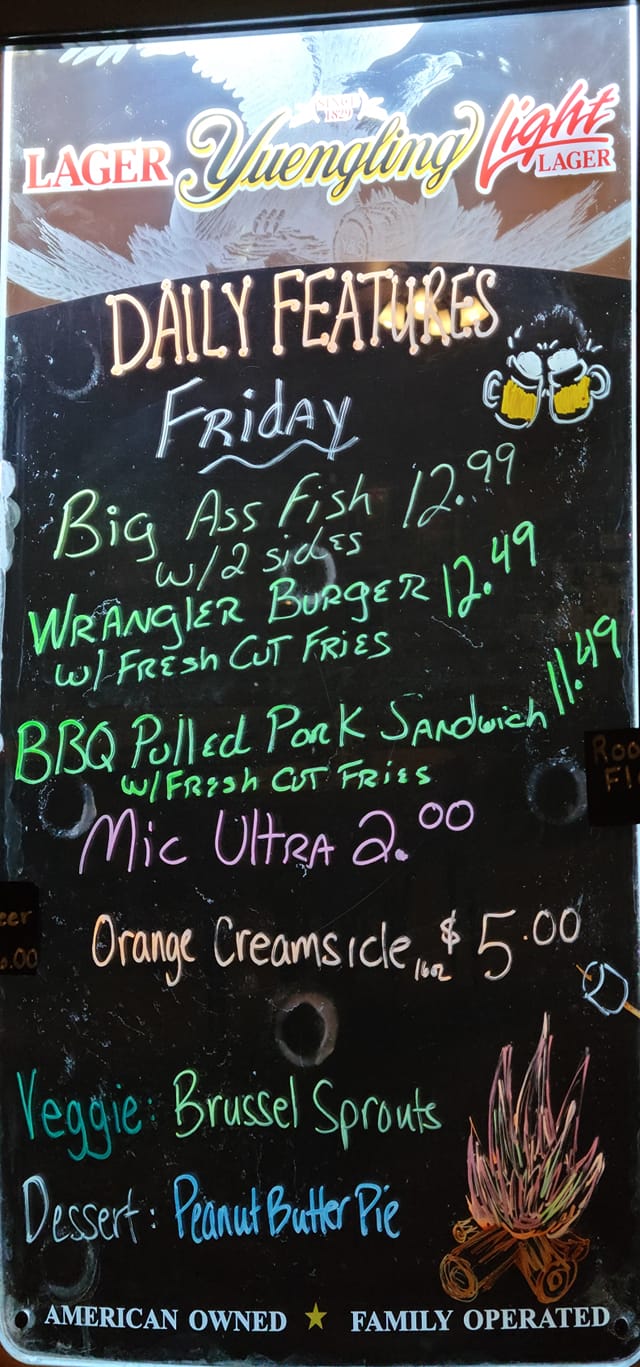 SINCE
1829
LAGER Yuengling Light
LAGER
DAILY FEATURES
FRIDAY
Big Ass Fish 12.99
w/2 sides
WRANGLER BURGER 12.49
w/ FRESH CUT FRIES
BBQ Pulled Pork SANDwich 11.49
w/FRESH CUT FRIES
Mic UltRA 2.00
Orange Creamsicle 16oz $5.00
Veggie: Brussel Sprouts
Dessert: Peanut Butter Pie
AMERICAN OWNED ★ FAMILY OPERATED